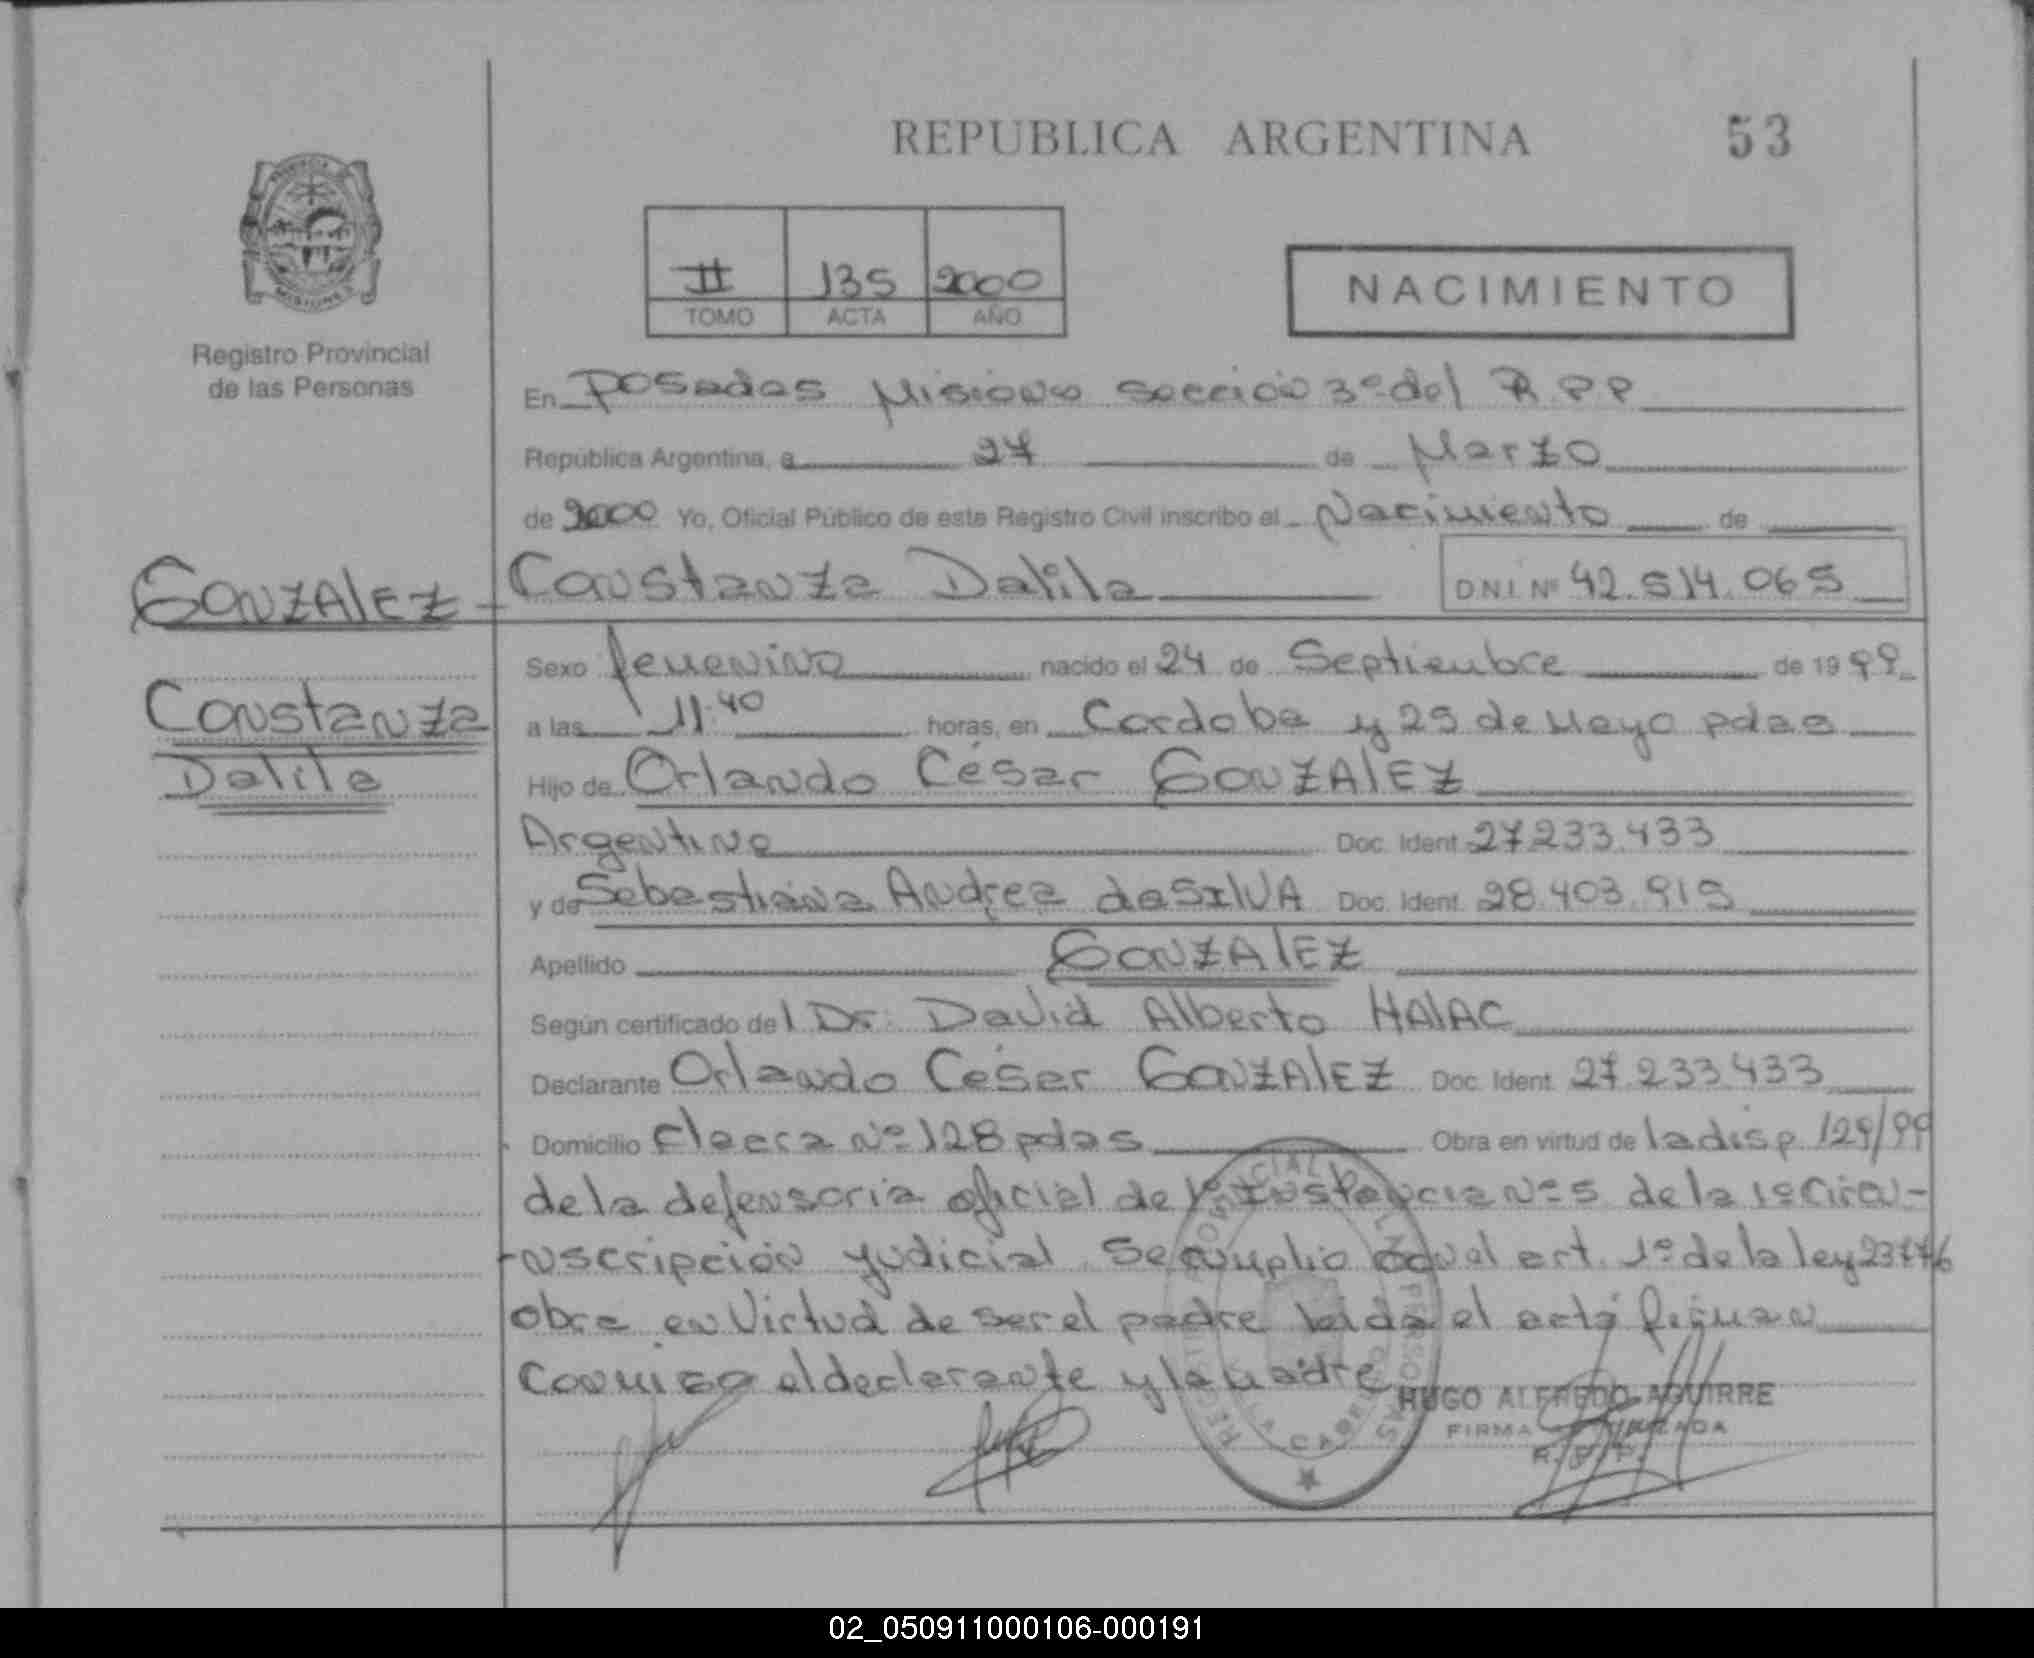 REPUBLICA ARGENTINA 53
PROVINCIA
MISIONES
Registro Provincial
de las Personas
II 135 2000
TOMO ACTA AÑO
NACIMIENTO
En Posadas Misiones sección 3º del R P P
República Argentina, a 27 de Marzo
de 2000 Yo, Oficial Público de este Registro Civil inscribo el Nacimiento de
GONZALEZ Constanza Dalila D.N.I. Nº 42.514.065
Constanza
Dalila
Sexo femenino nacido el 24 de Septiembre de 1999
a las 11.40 horas, en Cordoba y 25 de Mayo pdas
Hijo de Orlando César GONZALEZ
Argentino Doc. Ident. 27.233.433
y de Sebastiana Andrea da SILVA Doc. Ident. 28.403.915
Apellido GONZALEZ
Según certificado del Dr. David Alberto HALAC
Declarante Orlando César GONZALEZ Doc. Ident. 27.233.433
Domicilio Nº 128 pdas Obra en virtud de la disp. 129/99
de la defensoria oficial de 1º Instancia Nº 5 de la 1º Circu-
-nscripción judicial. Se cumplio con el art. 1º de la ley
obra en Virtud de ser el padre leida el acta firman
conmigo el declarante y la madre
HUGO ALFREDO AGUIRRE
FIRMA
R. P. P.
02_050911000106-000191